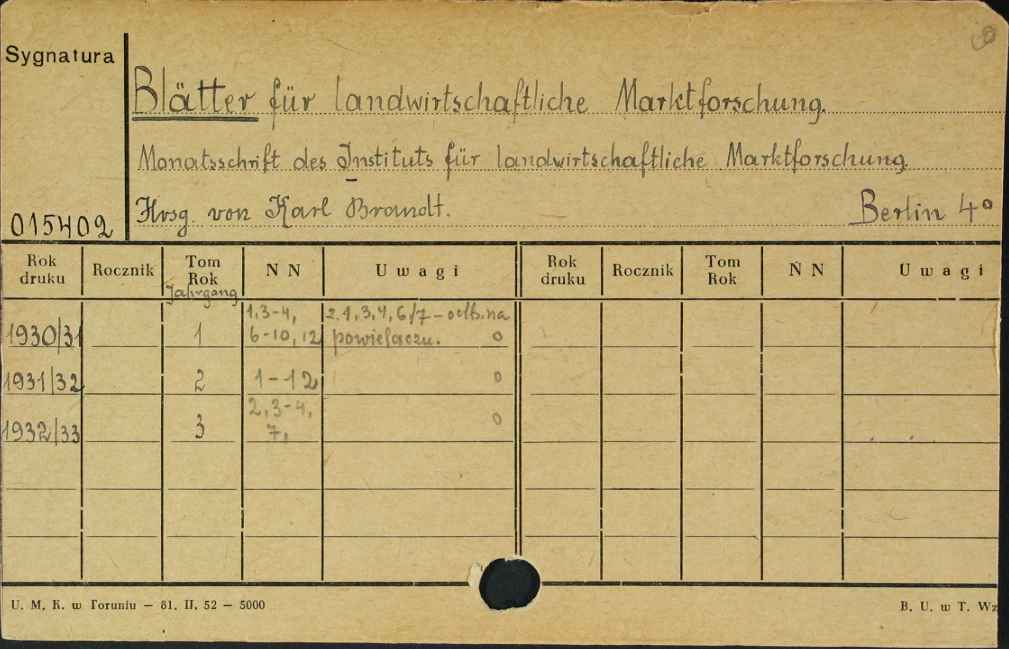 Sygnatura
Blätter für landwirtschaftliche Marktforschung.
Monatsschrift des Instituts für landwirtschaftliche Marktforschung.
015402 Hrsg. von Karl Brandt. Berlin 4º
Rok druku Rocznik Tom Rok Jahrgang N N Uwagi Rok druku Rocznik Tom Rok N N Uwagi
1930/31 1 1,3-4, 6-10, 12 2.1,3,4,6/7 - odb. na powielaczu. 0
1931/32 2 1-12 0
1932/33 3 2,3-4, 7, 0
U. M. K. w Toruniu — 81. II. 52 — 5000
B. U. w T. Wz